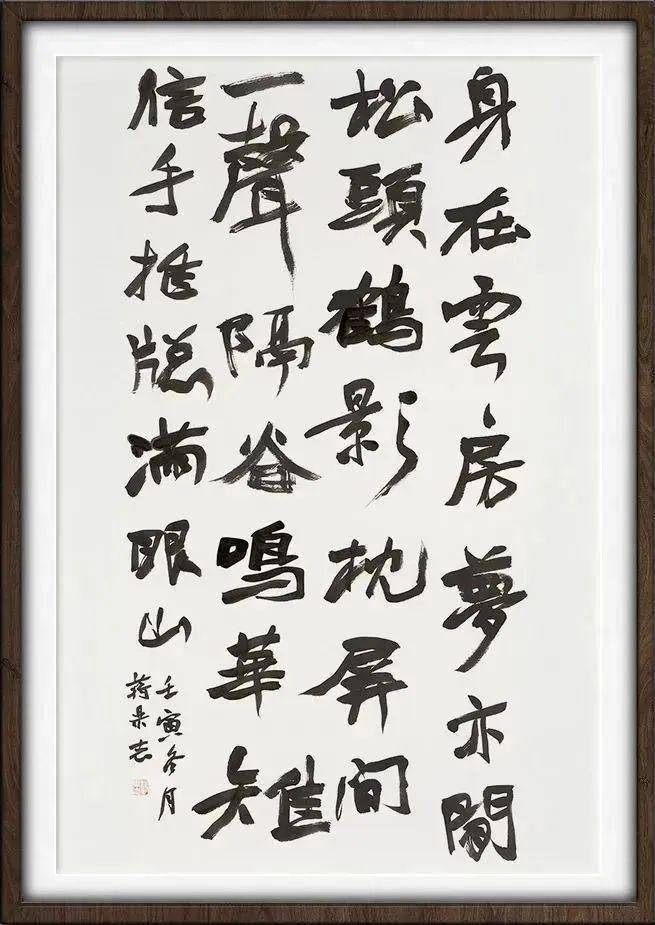 身在雲房夢亦閒
松頭鶴影枕屏間
一聲隔谷鳴華雉
信手推牕滿眼山
壬寅冬月